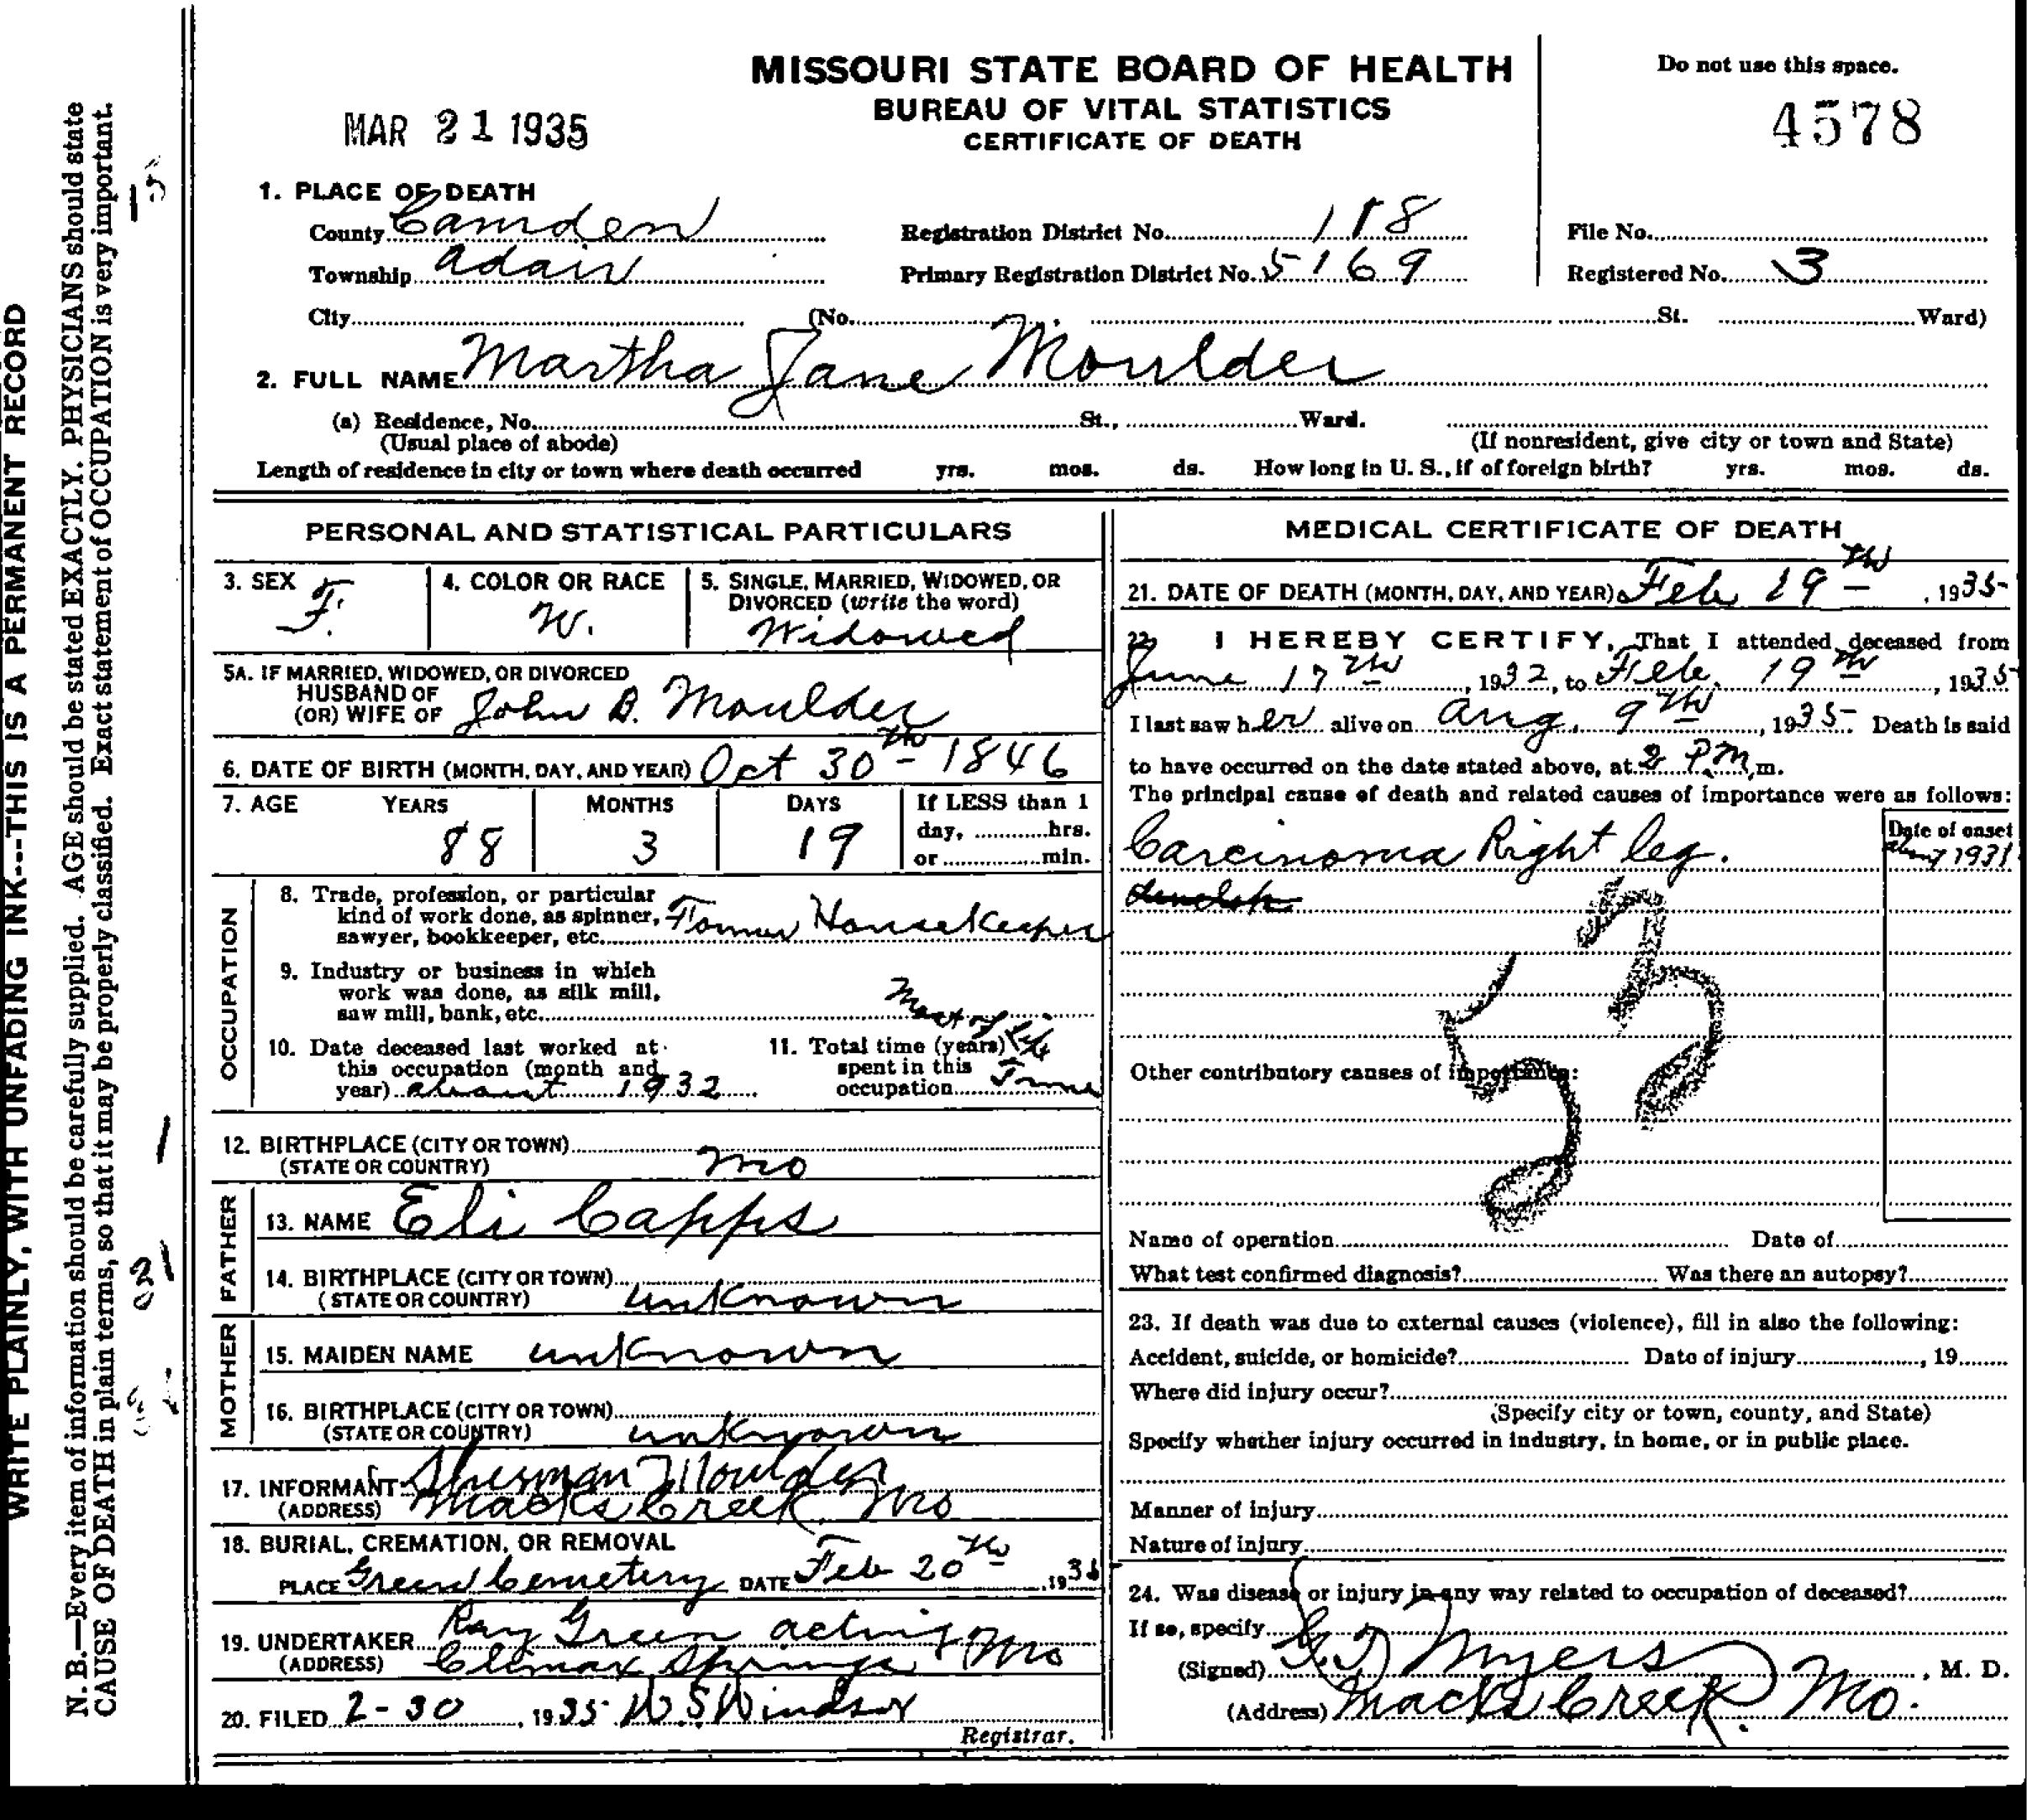 MISSOURI STATE BOARD OF HEALTH
BUREAU OF VITAL STATISTICS
CERTIFICATE OF DEATH
Do not use this space.
4578
MAR 21 1935
1. PLACE OF DEATH
County Camden
Township Adair
City (No. St. Ward)
Registration District No. 118
Primary Registration District No. 5169
File No.
Registered No. 3
2. FULL NAME Martha Jane Moulder
(a) Residence, No. St., Ward.
(Usual place of abode) (If nonresident, give city or town and State)
Length of residence in city or town where death occurred yrs. mos. ds. How long in U. S., if of foreign birth? yrs. mos. ds.
PERSONAL AND STATISTICAL PARTICULARS
3. SEX F.
4. COLOR OR RACE W.
5. SINGLE, MARRIED, WIDOWED, OR
DIVORCED (write the word)
Widowed
5A. IF MARRIED, WIDOWED, OR DIVORCED
HUSBAND OF
(OR) WIFE OF John B. Moulder
6. DATE OF BIRTH (MONTH, DAY, AND YEAR) Oct 30th - 1846
7. AGE YEARS MONTHS DAYS If LESS than 1
88 3 19 day, hrs.
or min.
OCCUPATION
8. Trade, profession, or particular
kind of work done, as spinner,
sawyer, bookkeeper, etc. Former Housekeeper
9. Industry or business in which
work was done, as silk mill,
saw mill, bank, etc.
10. Date deceased last worked at
this occupation (month and
year) about 1932
11. Total time (years)
spent in this
occupation Most of life Time
12. BIRTHPLACE (CITY OR TOWN)
(STATE OR COUNTRY) Mo
FATHER
13. NAME Eli Capps
14. BIRTHPLACE (CITY OR TOWN)
(STATE OR COUNTRY) unknown
MOTHER
15. MAIDEN NAME unknown
16. BIRTHPLACE (CITY OR TOWN)
(STATE OR COUNTRY) unknown
17. INFORMANT Sherman Moulder
(ADDRESS) Macks Creek, Mo
18. BURIAL, CREMATION, OR REMOVAL
PLACE Green Cemetery DATE Feb 20th, 1935
19. UNDERTAKER Ray Green acting
(ADDRESS) Climax Springs Mo
20. FILED 2-30, 1935 W. S. Windsor
Registrar.
MEDICAL CERTIFICATE OF DEATH
21. DATE OF DEATH (MONTH, DAY, AND YEAR) Feb 19th, 1935
22. I HEREBY CERTIFY, That I attended deceased from
June 17th, 1932, to Feb. 19th, 1935
I last saw her alive on Aug. 9th, 1935 Death is said
to have occurred on the date stated above, at 2 P.M. m.
The principal cause of death and related causes of importance were as follows:
Date of onset
Carcinoma Right leg. 1931
53
Other contributory causes of importance:
Name of operation Date of
What test confirmed diagnosis? Was there an autopsy?
23. If death was due to external causes (violence), fill in also the following:
Accident, suicide, or homicide? Date of injury, 19
Where did injury occur?
(Specify city or town, county, and State)
Specify whether injury occurred in industry, in home, or in public place.
Manner of injury
Nature of injury
24. Was disease or injury in any way related to occupation of deceased?
If so, specify
(Signed) G. T. Myers, M. D.
(Address) Macks Creek. Mo.
WRITE PLAINLY, WITH UNFADING INK---THIS IS A PERMANENT RECORD
N. B.—Every item of information should be carefully supplied. AGE should be stated EXACTLY. PHYSICIANS should state
CAUSE OF DEATH in plain terms, so that it may be properly classified. Exact statement of OCCUPATION is very important.
15